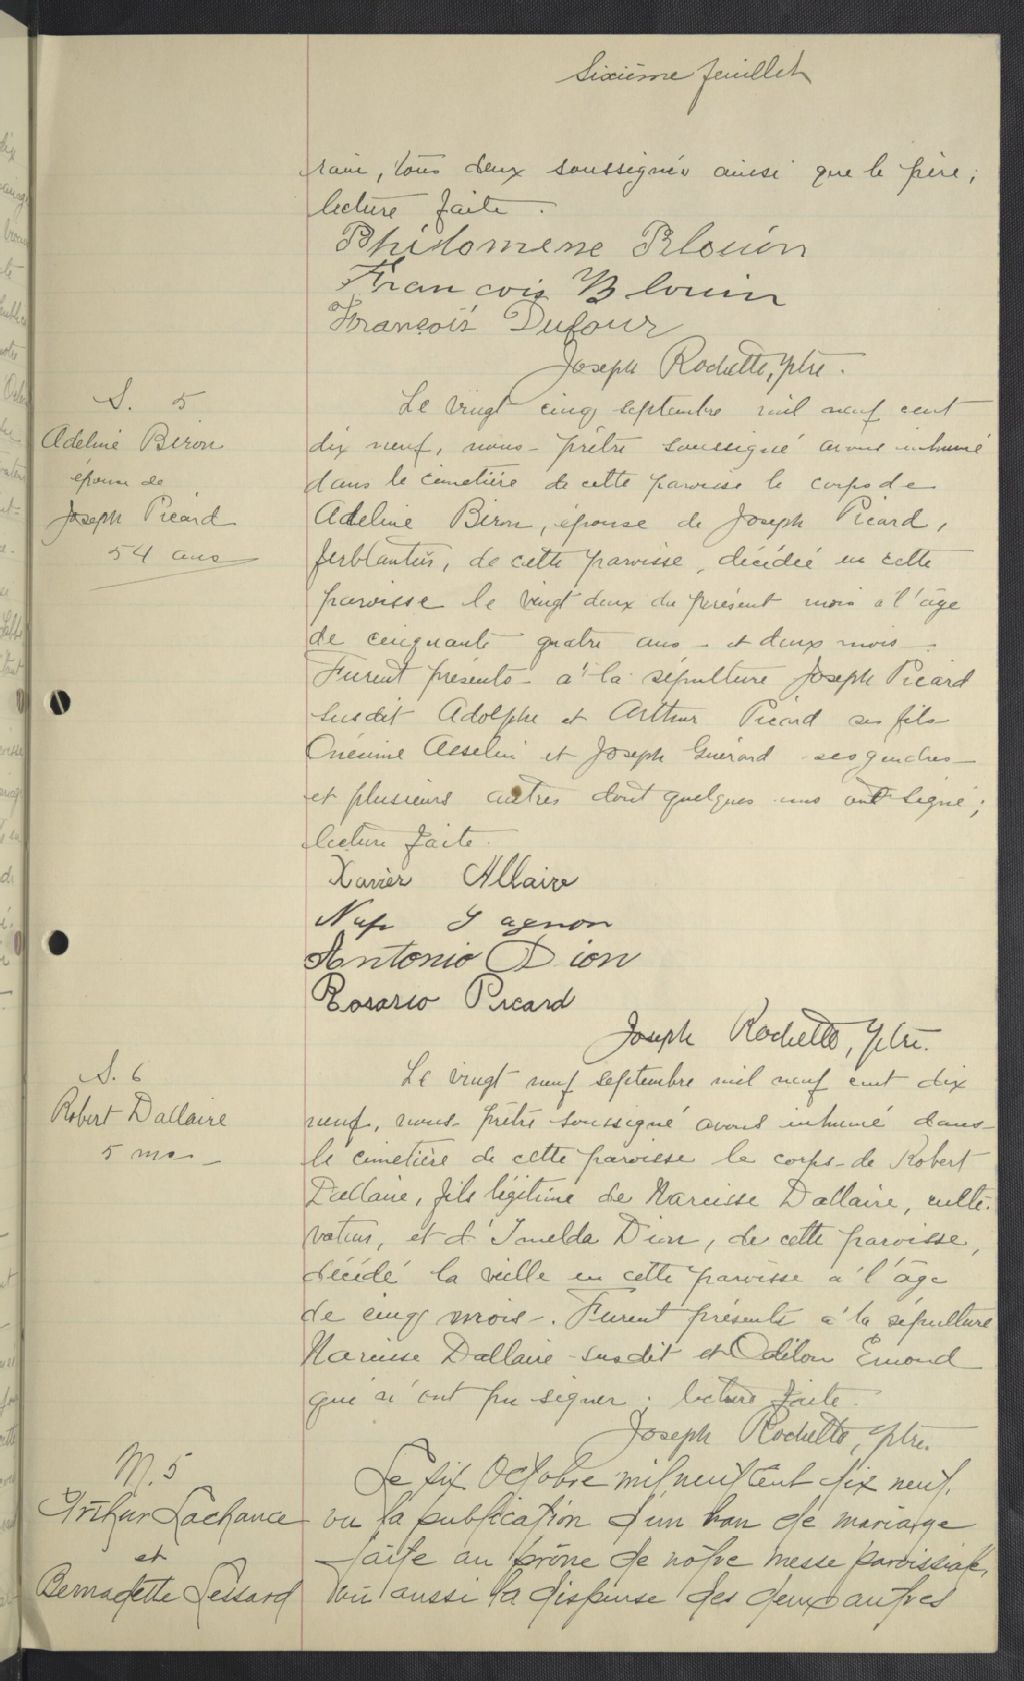 Sixième feuillet
raine, tous deux soussignés ainsi que le père;
lecture faite.
Philomene Blouin
François Blouin
François Dufour
Joseph Rochette, ptre.
S. 5
Adeline Biron
épouse de
Joseph Picard
54 ans
Le vingt cinq septembre mil neuf cent
dix neuf, nous prêtre soussigné avons inhumé
dans le cimetière de cette paroisse le corps de
Adeline Biron, épouse de Joseph Picard,
ferblantier, de cette paroisse, décédée en cette
paroisse le vingt deux du présent mois à l'âge
de cinquante quatre ans et deux mois.
Furent présents à la sépulture Joseph Picard
susdit Adolphe et Arthur Picard ses fils
Onésime Asselin et Joseph Guérard ses gendres
et plusieurs autres dont quelques uns ont signé;
lecture faite.
Xavier Allaire
Nap Gagnon
Antonio Dion
Rosario Picard
Joseph Rochette, ptre.
S. 6
Robert Dallaire
5 mois
Le vingt neuf septembre mil neuf cent dix
neuf, nous prêtre soussigné avons inhumé dans
le cimetière de cette paroisse le corps de Robert
Dallaire, fils légitime de Narcisse Dallaire, culti-
vateur, et d'Imelda Dion, de cette paroisse,
décédé la veille en cette paroisse à l'âge
de cinq mois. Furent présents à la sépulture
Narcisse Dallaire susdit et Odilon Emond
qui n'ont pu signer; lecture faite.
Joseph Rochette, ptre.
M. 5
Arthur Lachance
et
Bernadette Lessard
Le six Octobre mil neuf cent dix neuf,
vu la publication d'un ban de mariage
faite au prône de notre messe paroissiale,
vu aussi la dispense des deux autres